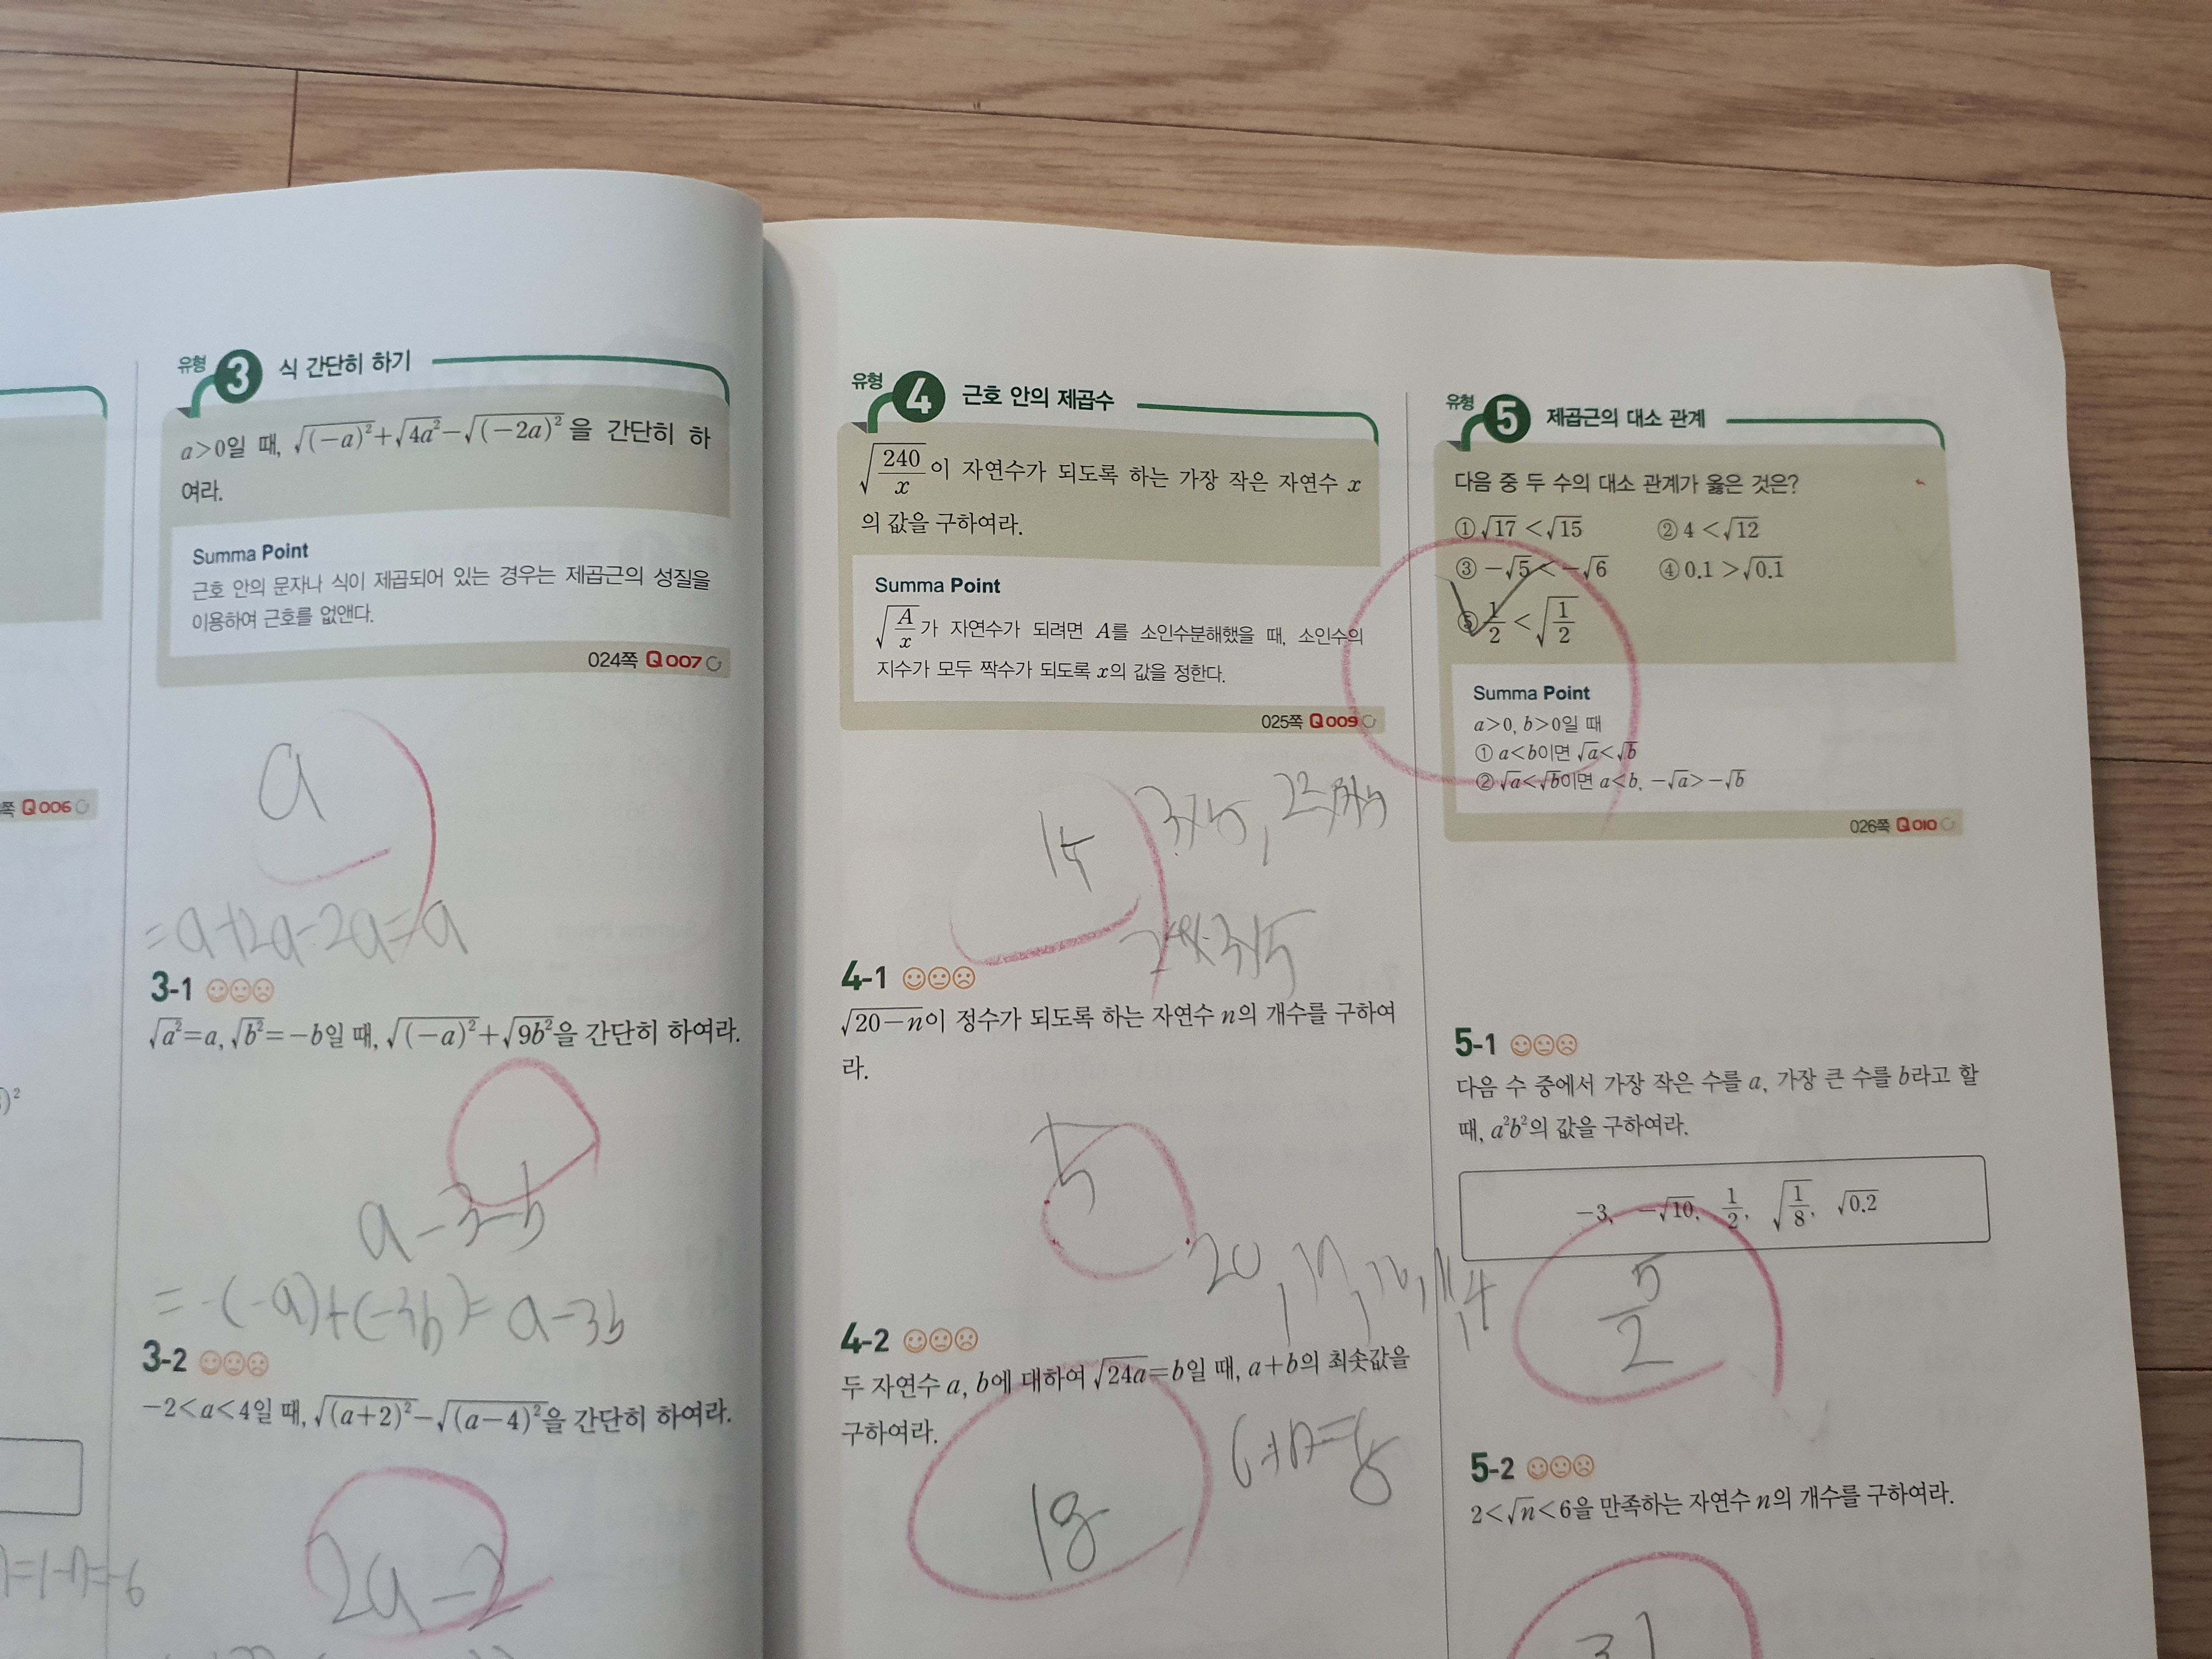 쪽 Q006
)²
=1-7=-6
유형 3 식 간단히 하기
a>0일 때, √(-a)²+√4a²-√(-2a)²을 간단히 하
여라.
Summa Point
근호 안의 문자나 식이 제곱되어 있는 경우는 제곱근의 성질을
이용하여 근호를 없앤다.
024쪽 Q007
a
=a+2a-2a=a
3-1
√a²=a, √b²=-b일 때, √(-a)²+√9b²을 간단히 하여라.
a-3b
=-(-a)+(-3b)=a-3b
3-2
-2<a<4일 때, √(a+2)²-√(a-4)²을 간단히 하여라.
2a-2
유형 4 근호 안의 제곱수
√(240/x)이 자연수가 되도록 하는 가장 작은 자연수 x
의 값을 구하여라.
Summa Point
√(A/x)가 자연수가 되려면 A를 소인수분해했을 때, 소인수의
지수가 모두 짝수가 되도록 x의 값을 정한다.
025쪽 Q009
15
3×5, 2²×3×5
2⁴×3×5
4-1
√20-n이 정수가 되도록 하는 자연수 n의 개수를 구하여
라.
5
20, 19, 16, 11, 4
4-2
두 자연수 a, b에 대하여 √24a=b일 때, a+b의 최솟값을
구하여라.
6+12=18
18
유형 5 제곱근의 대소 관계
다음 중 두 수의 대소 관계가 옳은 것은?
① √17<√15 ② 4<√12
③ -√5<-√6 ④ 0.1>√0.1
⑤ 1/2<√(1/2)
Summa Point
a>0, b>0일 때
① a<b이면 √a<√b
② √a<√b이면 a<b, -√a>-√b
026쪽 Q010
5-1
다음 수 중에서 가장 작은 수를 a, 가장 큰 수를 b라고 할
때, a²b²의 값을 구하여라.
-3, -√10, 1/2, √(1/8), √0.2
5/2
5-2
2<√n<6을 만족하는 자연수 n의 개수를 구하여라.
31